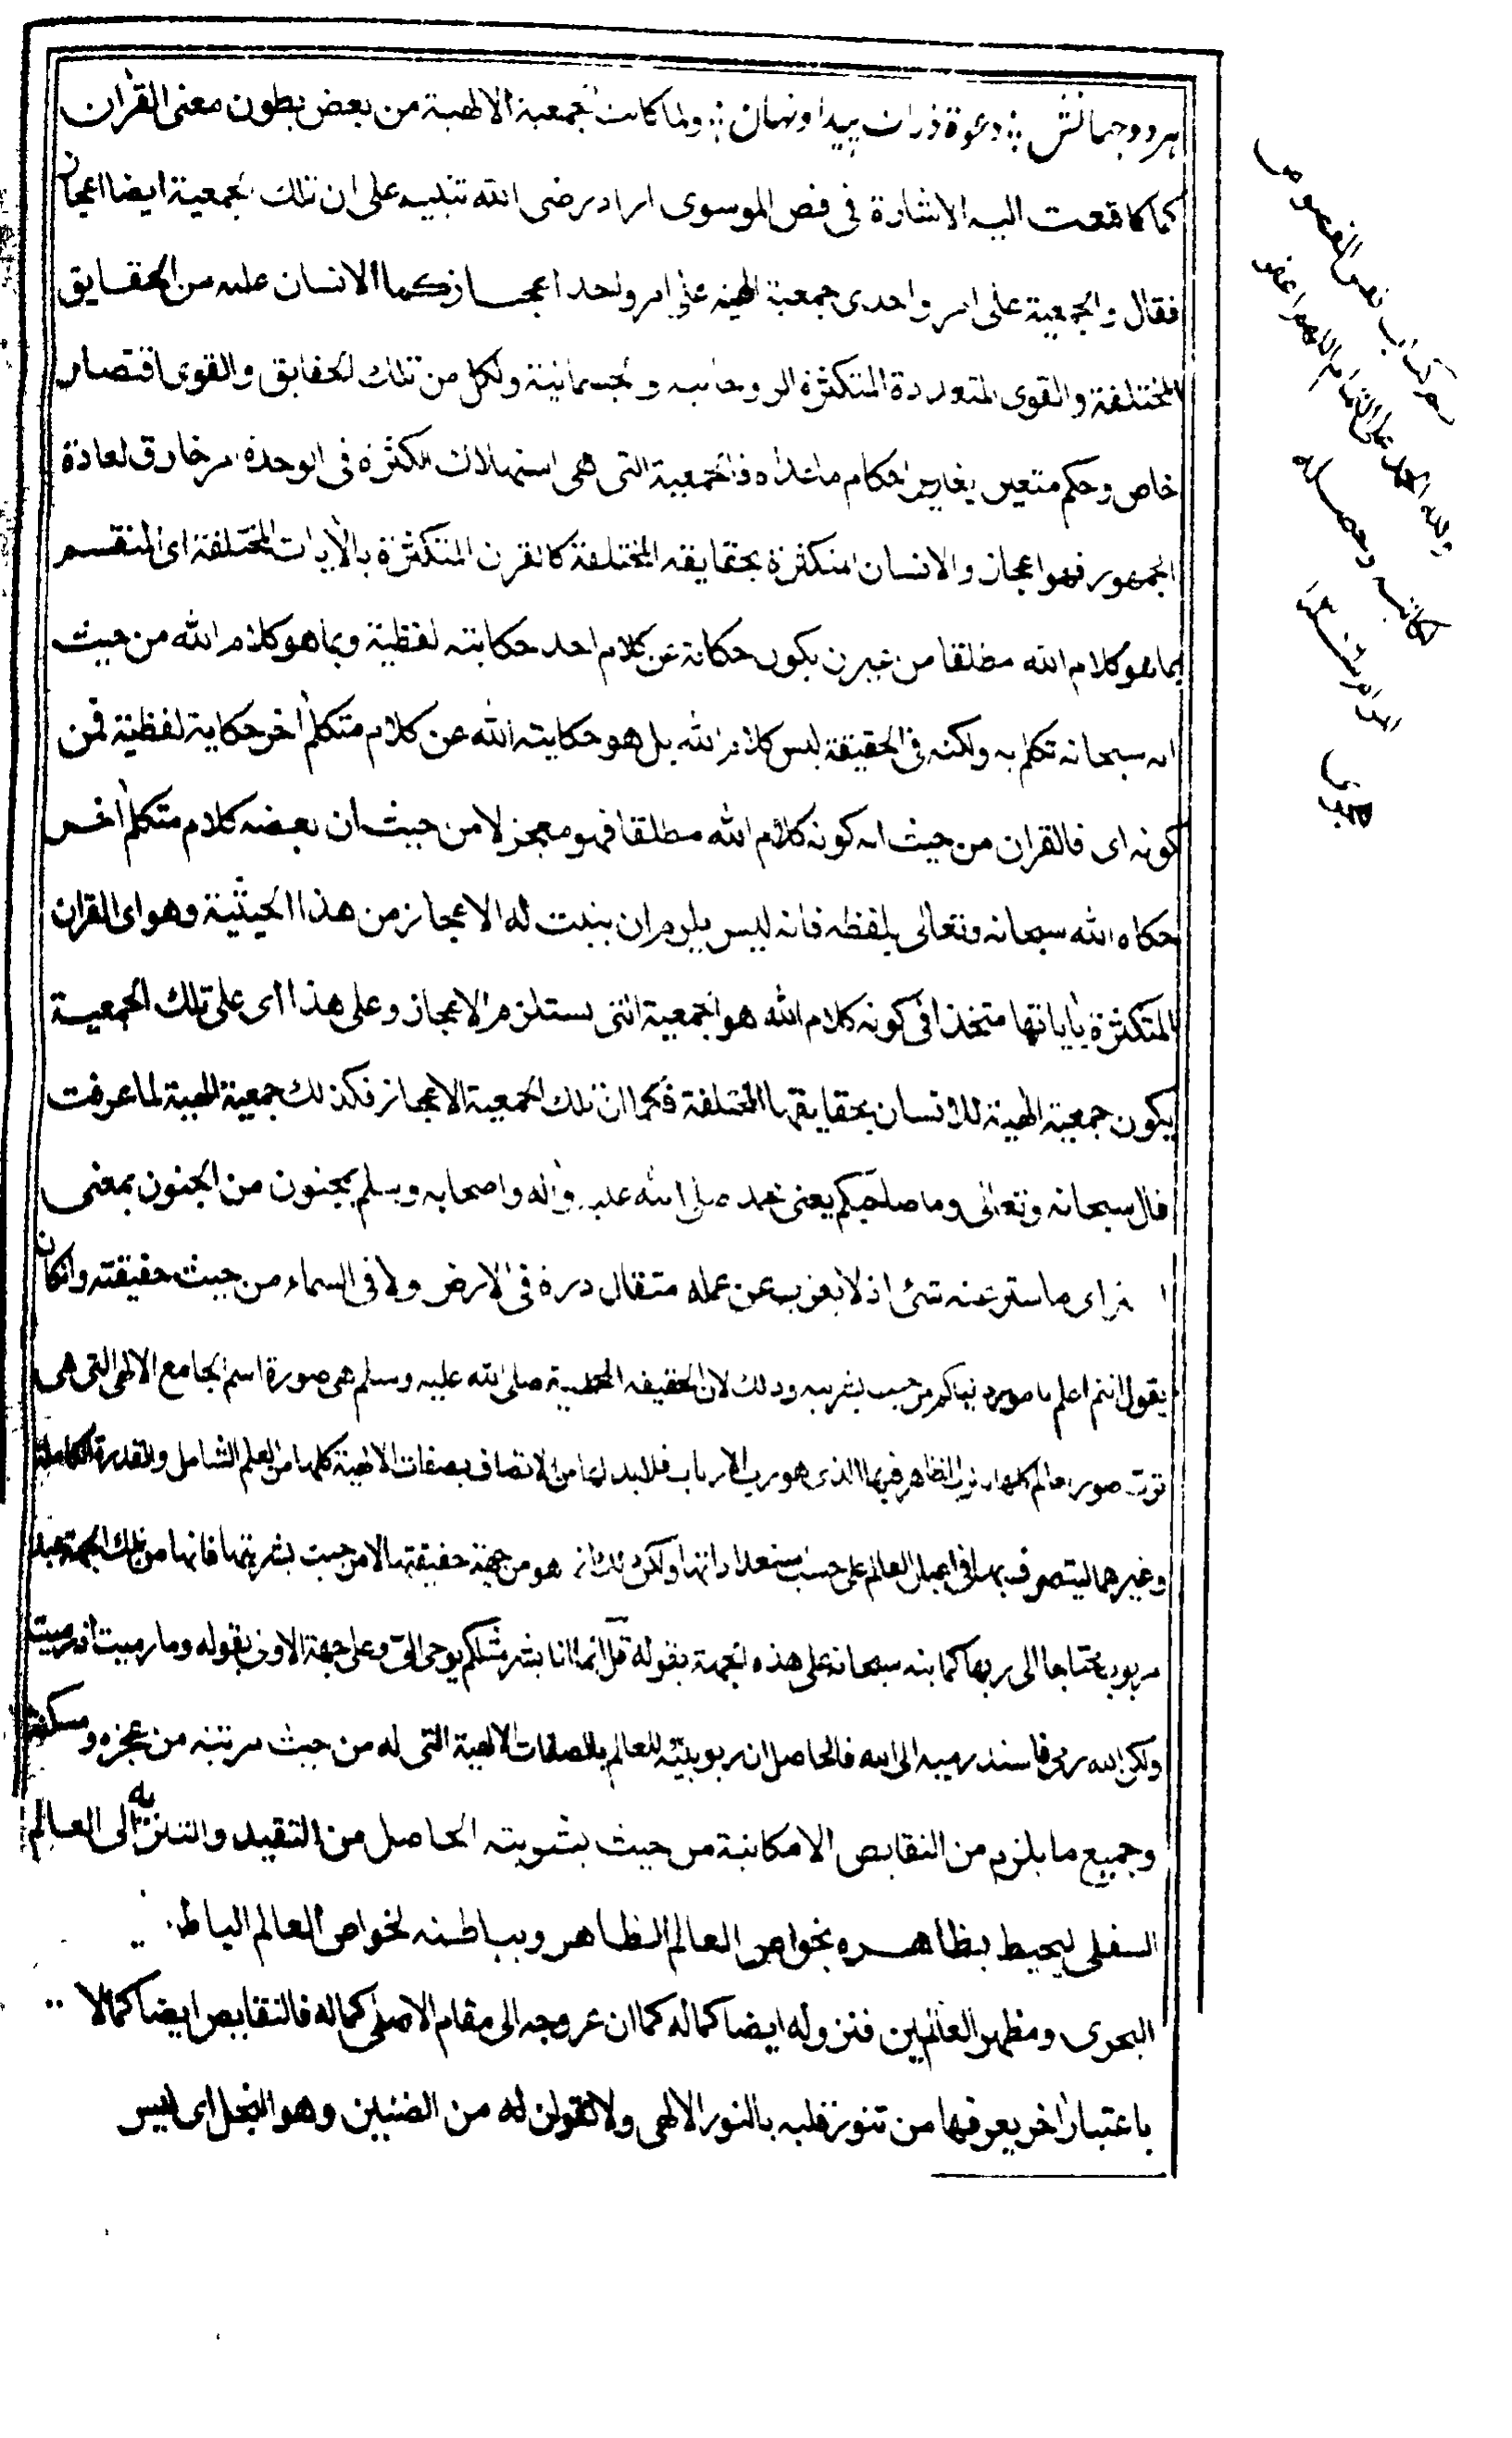 هر دو جهانش ؞ دعوة ذرات پيدا ونهان ؞ ولما كانت الجمعية الالهية من بعض بطون معنى القرأن
كما كا قعت اليه الاشارة فى فص الموسوى اراد رضى الله تنبيه على ان تلك الجمعية ايضا اعجاز
فقال والجمعية على امر واحد اى جمعية الهية على امر واحد اعجاز كما الانسان عليه من الحقايق
المختلفة والقوى المتعددة المتكثرة الروحانيه والجسمانية ولكل من تلك الحقايق والقوى اقتصار
خاص وحكم متعين يغاير احكام ماعداه فالجمعية التى هى استهلاك الكثرة فى الوحدة امر خارق لعادة
الجمهور فهو اعجاز والانسان المتكثرة بحقايقه المختلفة كالقرن المتكثرة بالأيات المختلفة اى المنقسم
بما هو كلام الله مطلقا من غيرن يكون حكاية عن كلام احد حكايته لفظية وبما هو كلام الله من حيث
انه سبحانه تكلم به ولكنه فى الحقيقة ليس كلام الله بل هو حكايته الله عن كلام متكلم أخر حكاية لفظية فمن
كونه اى فالقران من حيث انه كونه كلام الله مطلقا فهو معجز لا من حيث ان بعضه كلام متكلم أخر
حكاه الله سبحانه وتعالى بلفظه فانه ليس يلزم ان يثبت له الاعجاز من هذا الحيثية وهو اى القران
المتكثرة بأياتها متخذا فى كونه كلام الله هو الجمعية التى يستلزم الاعجاز وعلى هذا اى على تلك الجمعية
يكون جمعية الهية للانسان بحقايقها المختلفة فكما ان تلك الجمعية الاعجاز فكذلك جمعية الهية لما عرفت
قال سبحانه وتعالى وما صاحبكم يعنى محمد صلى الله عليه وأله واصحابه وسلم بمجنون من الجنون بمعنى
اى ما ستر عنه شئ اذ لا يعزب عن علمه مثقال ذرة فى الارض ولا فى السماء من حيث حقيقته وانكان
يقول انتم اعلم بامور دنياكم من حيث بشريته وذلك لان الحقيقه المحمدية صلى الله عليه وسلم هى صورة اسم الجامع الالهى التى هى
ترب صور العالم كلها بالرب الظاهر فيها الذى هو رب الارباب فلابد لها من الاتصاف بصفات الالهية كلها من العلم الشامل والقدرة الكاملة
وغيرهما ليتصرف بها فى اعيان العالم على حسب استعداداتها ولكن ذلك هو من جهة حقيقتها لا من حيث بشريتها فانها من تلك الجهة عبد
مربوب محتاجا الى ربها كما نبه سبحانه على هذه الجهة بقوله قل انما انا بشر مثلكم يوحى الى وعلى جهة الاولى بقوله وما رميت اذ رميت
ولكن الله رمى فاسند رميه الى الله فالحاصل ان ربوبيته للعالم بالصفات الالهية التى له من حيث مرتبته من عجزه ومسكنته
وجميع ما يلزم من النقايص الامكانية من حيث بشريته الحاصل من التقيد والتنزيه الى العالم
السفلى ليحيط بظاهره بخواص العالم الظاهر وبباطنه لخواص العالم الباطن
البحرى ومظهر العالمين فنزوله ايضا كماله كما ان عروجه الى مقام الاصلى كماله فالنقايص ايضا كمالا
باعتبار أخر يعرفها من تنور قلبه بالنور الالهى ولا لقولن له من الضنين وهو البخل اى ليس
كتاب نص الفصوص
ولله الحمد على التمام اللهم اغفر
كاتبه